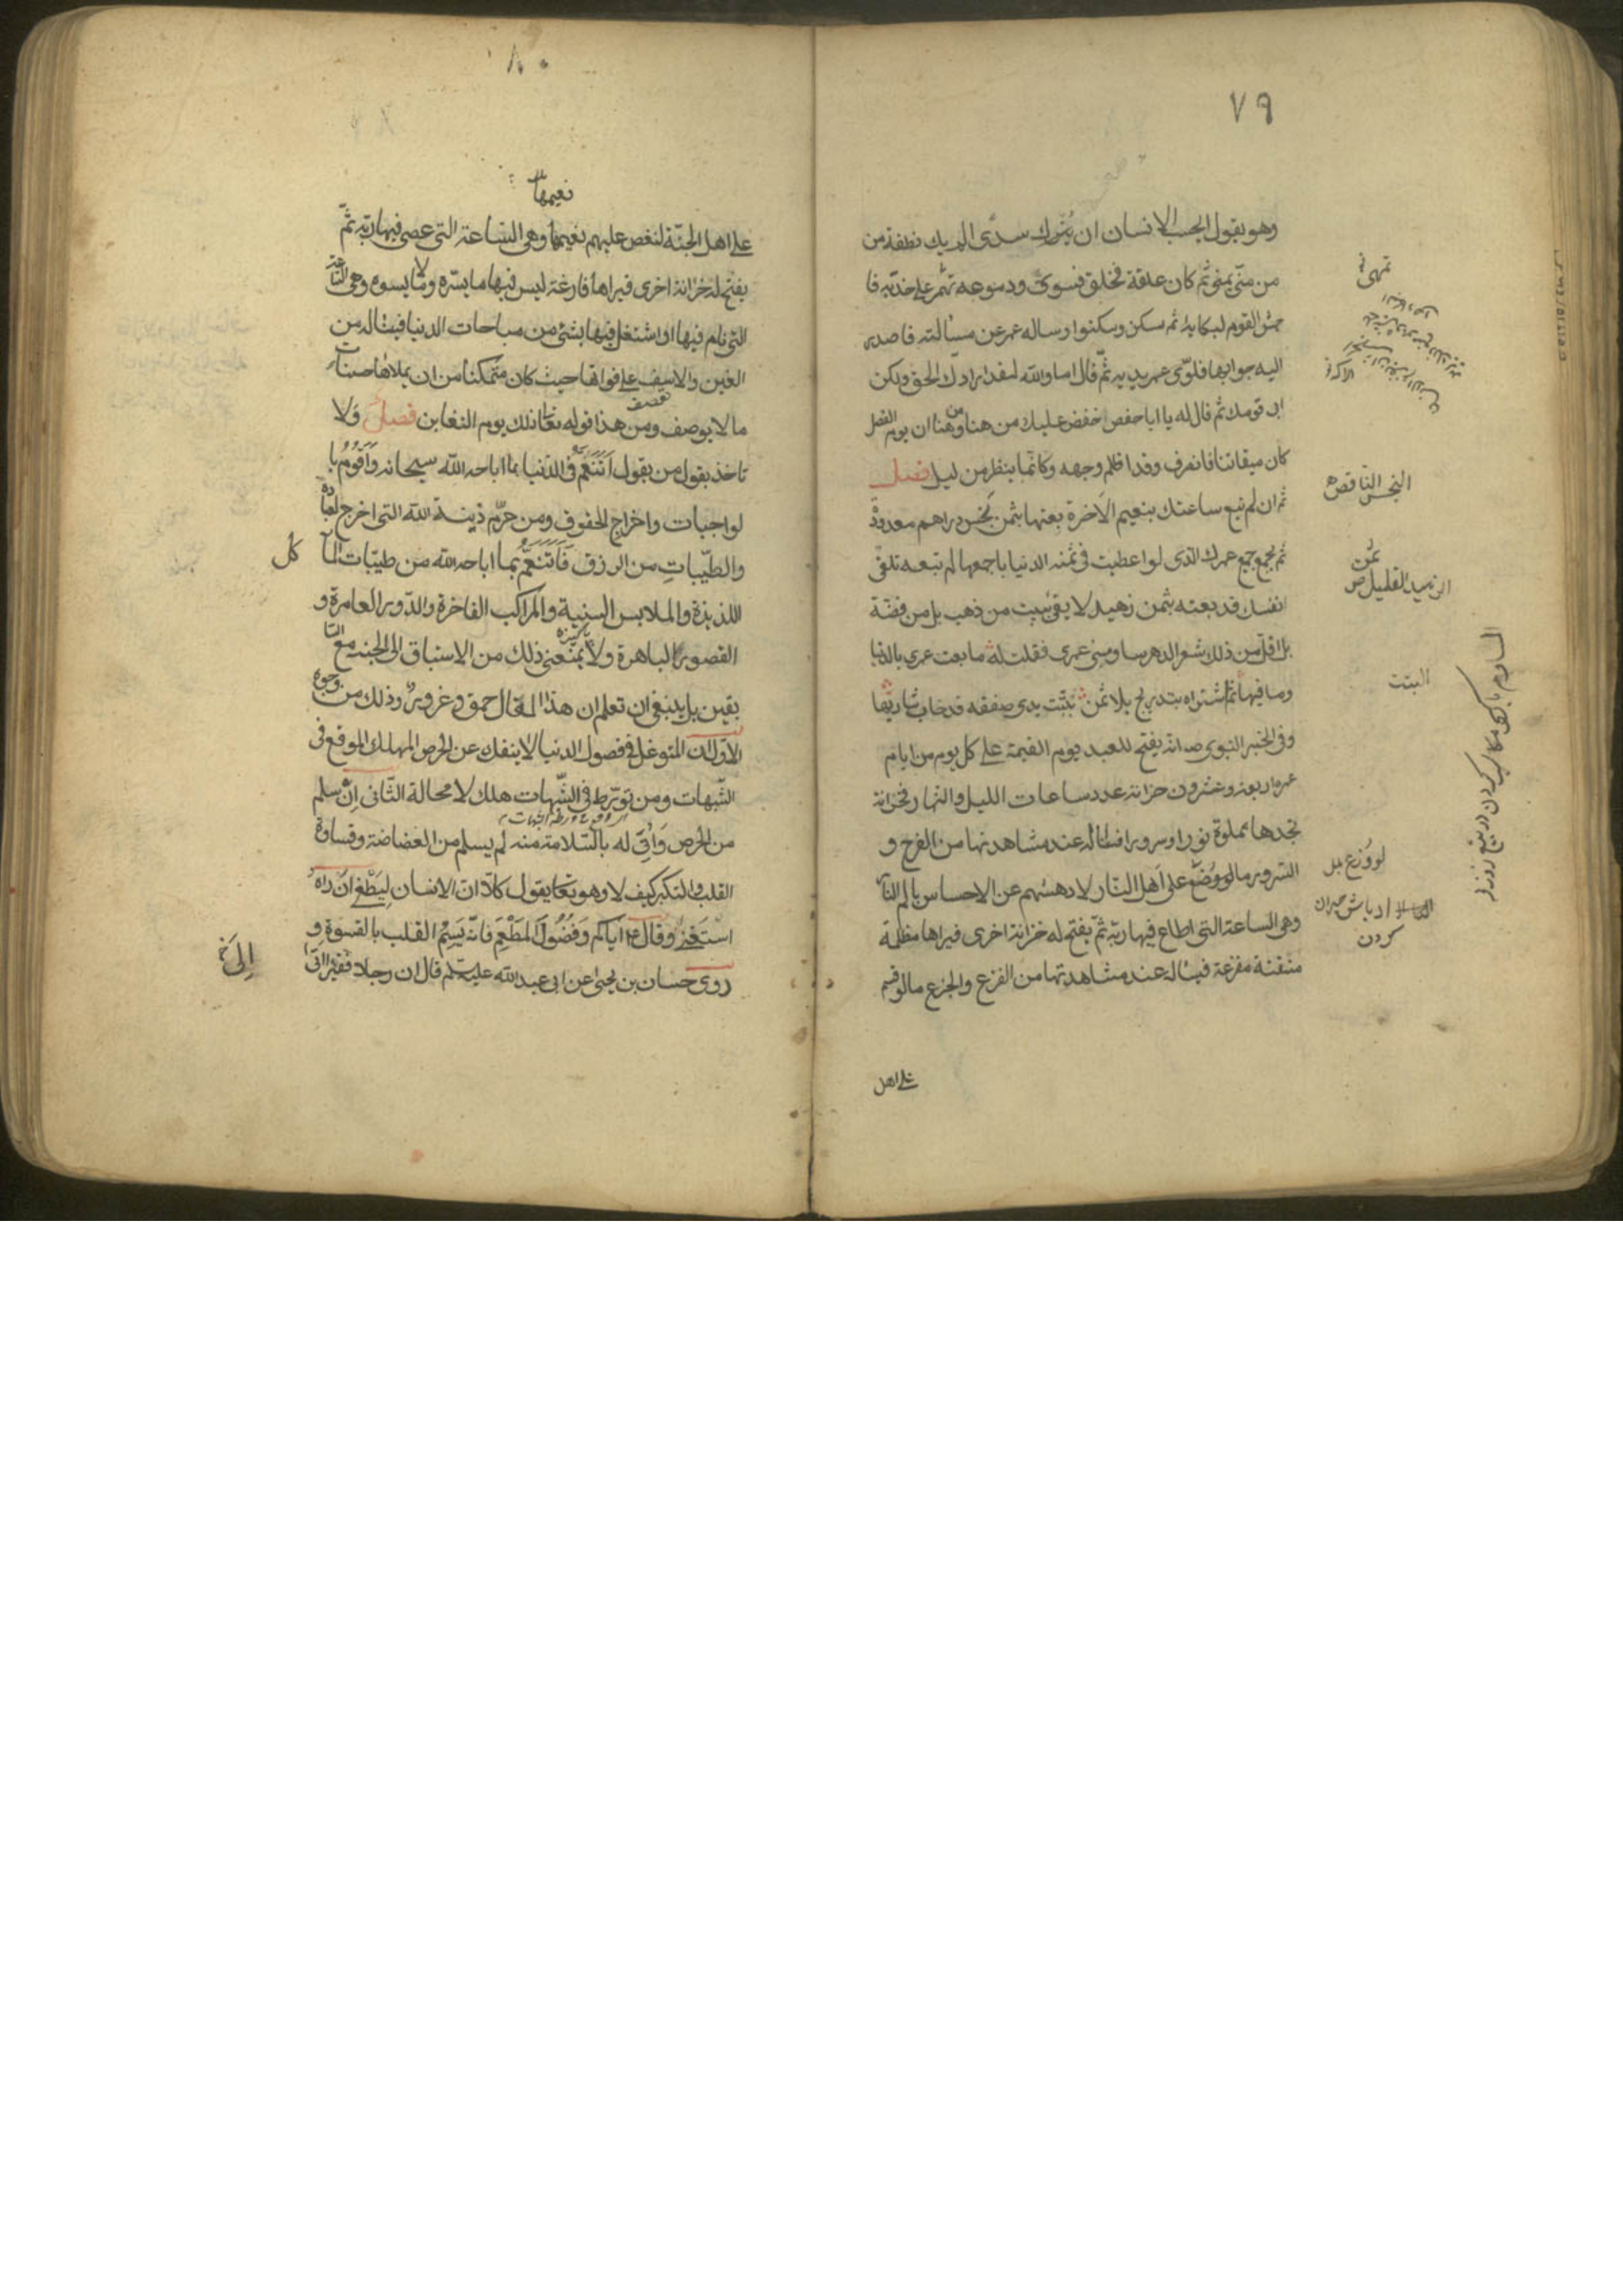 ٧٩
وهو يقول ايحسب الانسان ان يترك سدى الم يك نطفة من
من منّى يمنى ثم كان علقة فخلق فسوى ودموعه تهمر على خديه فا
القوم لبكائه ثم سكن وسكنوا وساله عمر عن مسألته فاصدر
اليه جوابها فلوى عمر يديه ثمّ قال اما والله لقد ارادك الحق ولكن
ابى قومك ثم قال له يا ابا حفص خفض عليك من هنا ومن هنا ان يوم الفصل
كان ميقاتا فانصرف وقد اظلم وجهه وكانّما ينظر من ليل فصل
ثم ان لم تبع ساعتك بنعيم الآخرة بعتها بثمن بخس دراهم معدودة
ثم بجميع عمرك الذى لو اعطيت فى ثمنه الدنيا باجمعها لم تبعه تلقى
انفسك قد بعته بثمن زهيد لا يفى ببيت من ذهب بل من فضّة
بل اقل من ذلك شعر الدهر ساومنى عمرى فقلت له ما بعت عمرى بالدنيا
وما فيها ثم اشتراه بتدريج بلا ثمن تبّت يدى صفقه قد خاب شاريها
وفى الخبر النبوى ص انه يفتح للعبد يوم القيمة على كل يوم من ايام
عمره اربعة وعشرون خزانة عدد ساعات الليل والنهار فخزانة
يجدها مملوة نورا وسرورا فيناله عند مشاهدتها من الفرح و
السرور ما لو وزّع على اهل النار لادهشهم عن الاحساس بالم النار
وهى الساعة التى اطاع فيها ربّه ثمّ يفتح له خزانة اخرى فيراها مظلمة
منتنة مفزعة فيناله عند مشاهدتها من الفزع والجزع ما لو قسم
على اهل
البخس الناقص
ثمن
الزهيد القليل ص
البتت
لو وزع بدل
ادباش حيران
كردن
٨٠
نعيمها
على اهل الجنّة لنغص عليهم نعيمها وهى الساعة التى عصى فيها ربّه ثمّ
يفتح له خزانة اخرى فيراها فارغة ليس فيها ما يسّره ولا ما يسوه وهى الساعة
التى نام فيها او اشتغل فيها بشئ من مباحات الدنيا فيناله من
الغبن والاسف على فواتها حيث كان متمكنا من ان يملاها حسنات
ما لا يوصف ومن هذا قوله تعا ذلك يوم التغابن فصل ولا
تاخذ بقول من يقول انتنعّم فى الدنيا بما اباحه الله سبحانه واقوم با
لواجبات واخراج الحقوق ومن حرّم زينة الله التى اخرج لعباده
والطيّبات من الرزق فاتنعّم بما اباحه الله من طيّبات المآ
كل
اللذيذة والملابس السنية والمراكب الفاخرة والدّور العامرة و
القصور الباهرة ولا يمنعنى ذلك من الاستباق الى الجنة مع السا
بقين بل ينبغى ان تعلم ان هذا المقال حمق وغرور وذلك من وجوه
الاوّل انّ المتوغل فى فصول الدنيا لا ينفك عن الحرص المهلك الموقع فى
الشبهات ومن تورّط فى الشبهات هلك لا محالة الثانى ان سلم
من الحرص وانّى له بالسّلامة منه لم يسلم من الغضاضة وقساوة
القلب والتكبر كيف لا وهو تعا يقول كلّا انّ الانسان ليطغى ان راه
استغنى وقال ع اياكم وفضول المطعم فانّه يسم القلب بالقسوة و
روى حسان بن يحيى عن ابى عبد الله عليه السلم قال ان رجلا فقيرا اتى
الى